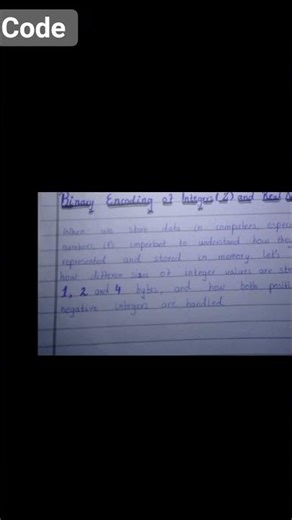 Code
Binary Encoding of Integers (Z) and Real
When we store data in computers, espec
numbers, it's important to understand how they
represented and stored in memory. Let's
how different sizes of integer values are sto
1, 2 and 4 bytes, and how both positi
negative integers are handled